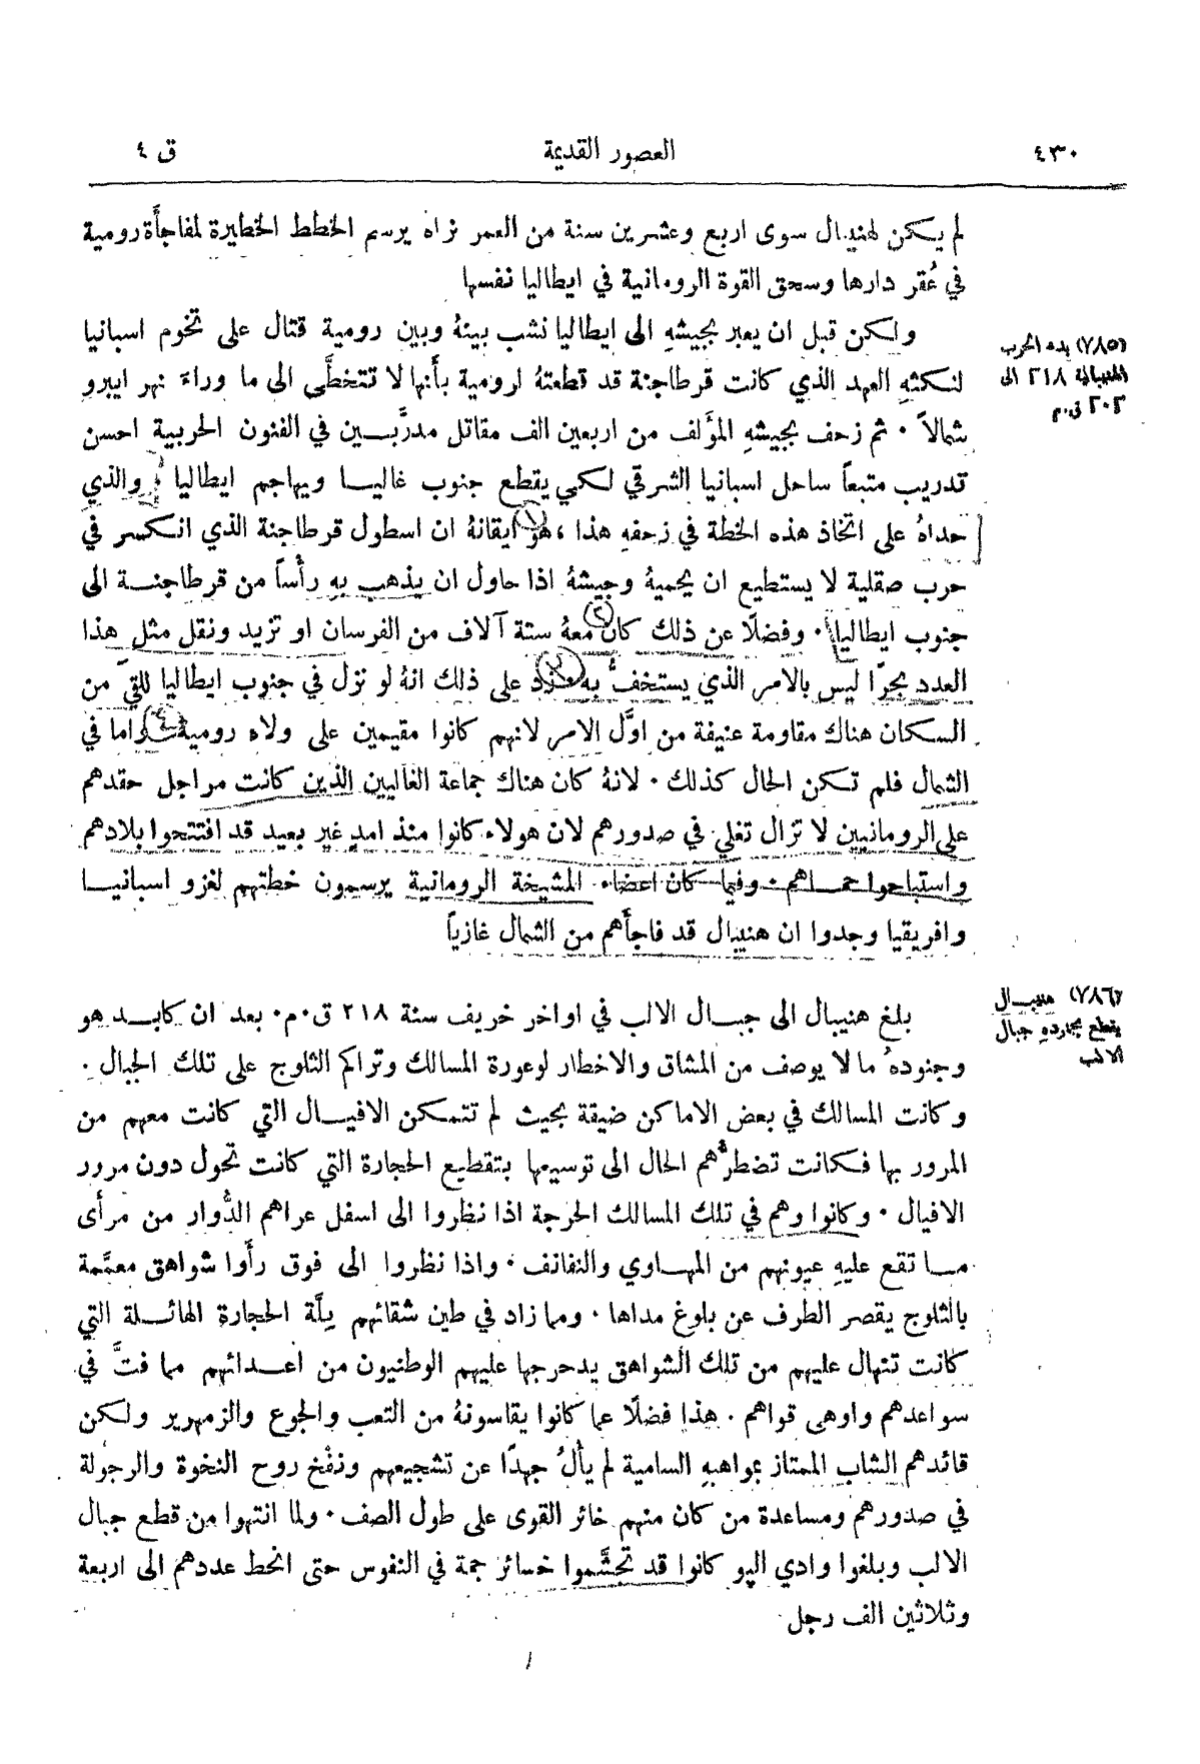 ٤٣٠
العصور القديمة
ق ٤
لم يكن لهنيبال سوى اربع وعشرين سنة من العمر نراه يرسم الخطط الخطيرة لمفاجأة رومية
في عُقر دارها وسحق القوة الرومانية في ايطاليا نفسها
(٧٨٥) بدء الحرب
الهنيبالية ٢١٨ الى
٢٠٢ ق.م
ولكن قبل ان يعبر بجيشهِ الى ايطاليا نشب بينهُ وبين رومية قتال على تخوم اسبانيا
لنكثهِ العهد الذي كانت قرطاجنة قد قطعتهُ لرومية بأنها لا تتخطَّى الى ما وراءَ نهر ايبرو
شمالاً . ثم زحف بجيشهِ المؤَلف من اربعين الف مقاتل مدرَّبين في الفنون الحربية احسن
تدريب متبعاً ساحل اسبانيا الشرقي لكي يقطع جنوب غاليا ويهاجم ايطاليا . والذي
حداهُ على اتخاذ هذه الخطة في زحفهِ هذا ، هو ايقانهُ ان اسطول قرطاجنة الذي انكسر في
حرب صقلية لا يستطيع ان يحميهُ وجيشهُ اذا حاول ان يذهب بهِ رأساً من قرطاجنة الى
جنوب ايطاليا . وفضلًا عن ذلك كان معهُ ستة آلاف من الفرسان او تزيد ونقل مثل هذا
العدد بحرًا ليس بالامر الذي يستخفُّ بهِ . زد على ذلك انهُ لو نزل في جنوب ايطاليا للقيَ من
السكان هناك مقاومة عنيفة من اوَّل الامر لانهم كانوا مقيمين على ولاء رومية . واما في
الشمال فلم تكن الحال كذلك . لانهُ كان هناك جماعة الغاليين الذين كانت مراجل حقدهم
على الرومانيين لا تزال تغلي في صدورهم لان هولاء كانوا منذ امدٍ غير بعيد قد افتتحوا بلادهم
واستباحوا حماهم . وفيما كان اعضاء المشيخة الرومانية يرسمون خطتهم لغزو اسبانيا
وافريقيا وجدوا ان هنيبال قد فاجأهم من الشمال غازياً
(٧٨٦) هنيبال
يقطع بجنوده جبال
الالب
بلغ هنيبال الى جبال الالب في اواخر خريف سنة ٢١٨ ق.م. بعد ان كابد هو
وجنودهُ ما لا يوصف من المشاق والاخطار لوعورة المسالك وتراكم الثلوج على تلك الجبال .
وكانت المسالك في بعض الاماكن ضيقة بحيث لم تتمكن الافيال التي كانت معهم من
المرور بها فكانت تضطرُّهم الحال الى توسيعها بتقطيع الحجارة التي كانت تحول دون مرور
الافيال . وكانوا وهم في تلك المسالك الحرجة اذا نظروا الى اسفل عراهم الدُّوار من مرأى
ما تقع عليهِ عيونهم من المهاوي والنفانف . واذا نظروا الى فوق رأَوا شواهق معمَّمة
بالثلوج يقصر الطرف عن بلوغ مداها . ومما زاد في طين شقائهم بِلَّة الحجارة الهائلة التي
كانت تنهال عليهم من تلك الشواهق يدحرجها عليهم الوطنيون من اعدائهم مما فتَّ في
سواعدهم واوهى قواهم . هذا فضلًا عما كانوا يقاسونهُ من التعب والجوع والزمهرير ولكن
قائدهم الشاب الممتاز بمواهبهِ السامية لم يألُ جهدًا عن تشجيعهم ونفْخ روح النخوة والرجولة
في صدورهم ومساعدة من كان منهم خائر القوى على طول الصف . ولما انتهوا من قطع جبال
الالب وبلغوا وادي الپو كانوا قد تجشَّموا خسائر جمة في النفوس حتى انحط عددهم الى اربعة
وثلاثين الف رجل